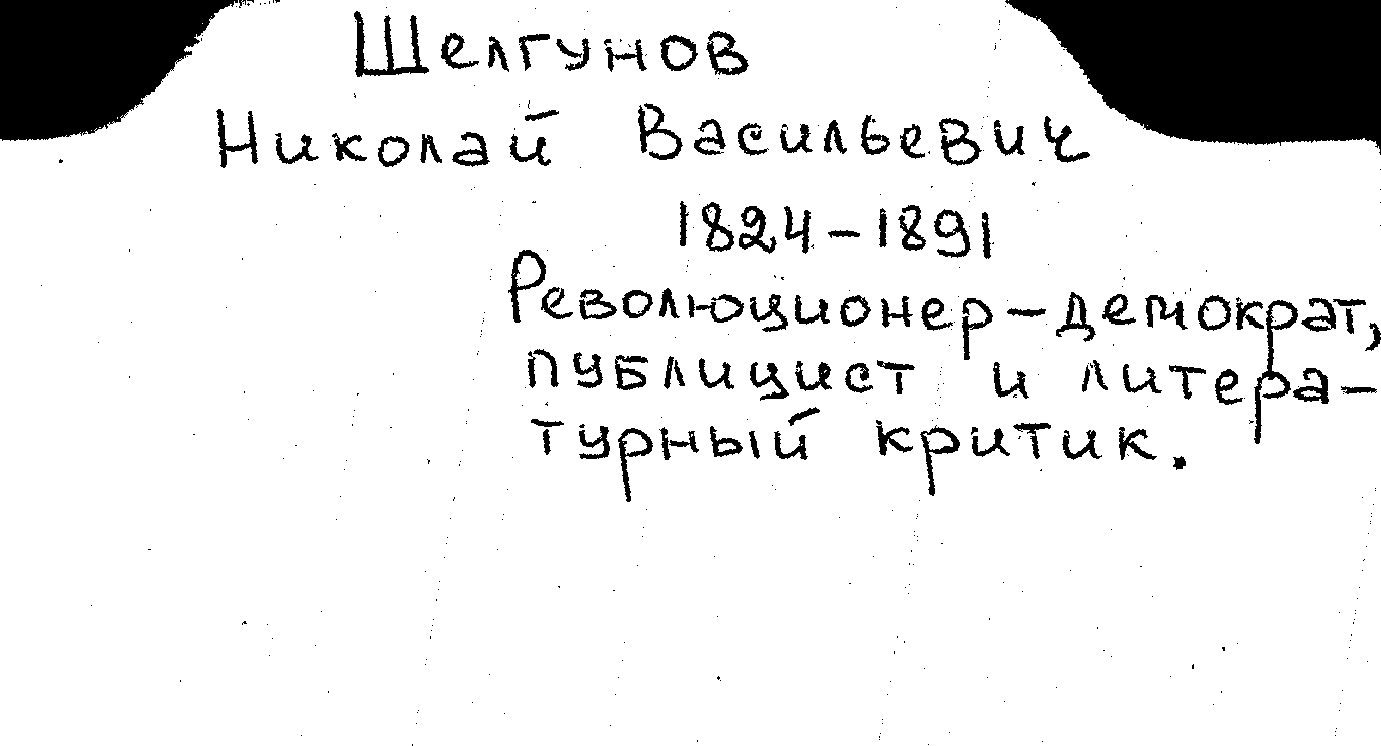 Шелгунов
Николай Васильевич
1824-1891
Революционер-демократ,
публицист и литера-
турный критик.